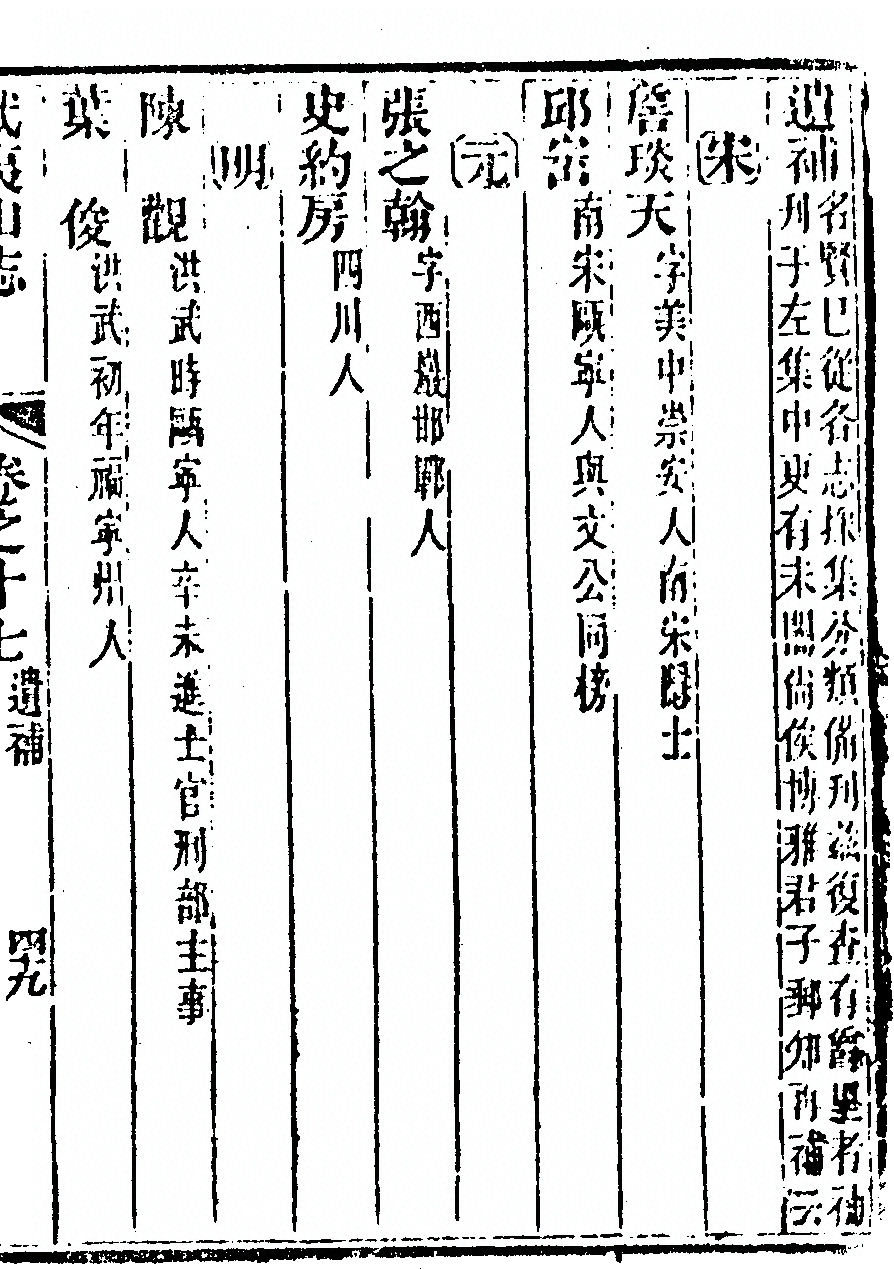 遺補
名賢已從各志採集分類備刋茲復查有翰墨者補
刋于左集中更有未閱尚俟博雅君子郵
再補云
宋
詹琰夫 字美中崇安人南宋隱士
邱崈 南宋甌寧人與文公同榜
元
張之翰 字西巖邯鄲人
史約房 四川人
明
陳觀 洪武時甌寧人辛未進士官刑部主事
葉俊 洪武初年福寧州人
武夷山志
卷之十七 遺補 四十九